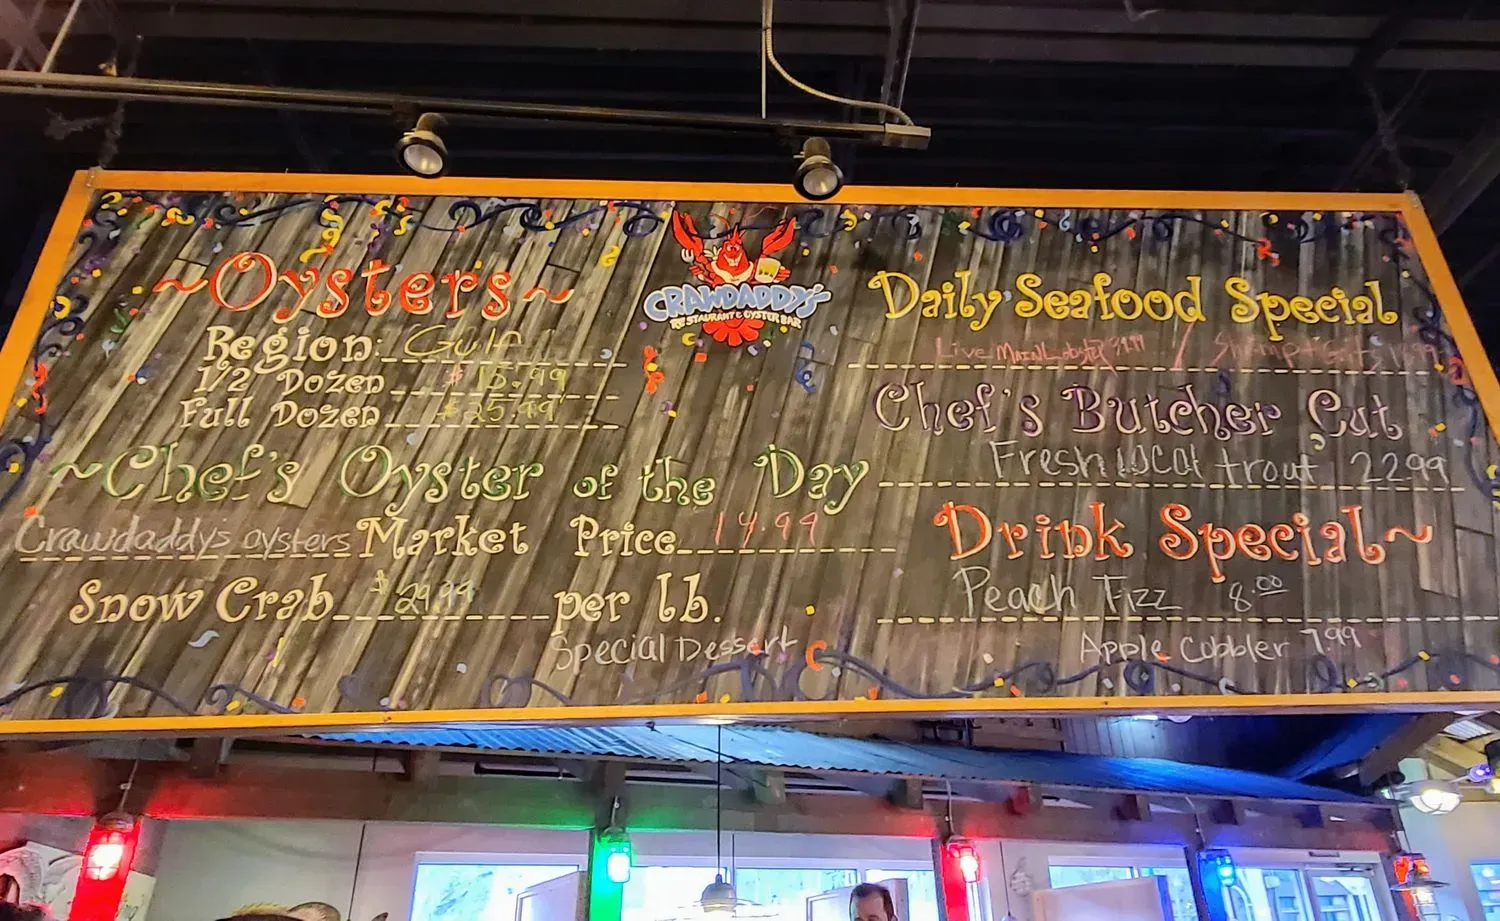 ~Oysters~
Region: Gulf
1/2 Dozen $15.99
Full Dozen $25.99
~Chef's Oyster of the Day
Crawdaddy's oysters Market Price 19.99
Snow Crab $29.99 per lb.
Special Dessert
CRAWDADDY'S
RESTAURANT & OYSTER BAR
Daily Seafood Special
Live Main Lobster / Shrimp
Chef's Butcher Cut
Fresh local trout 22.99
Drink Special~
Peach Fizz 8.00
Apple Cobbler 7.99